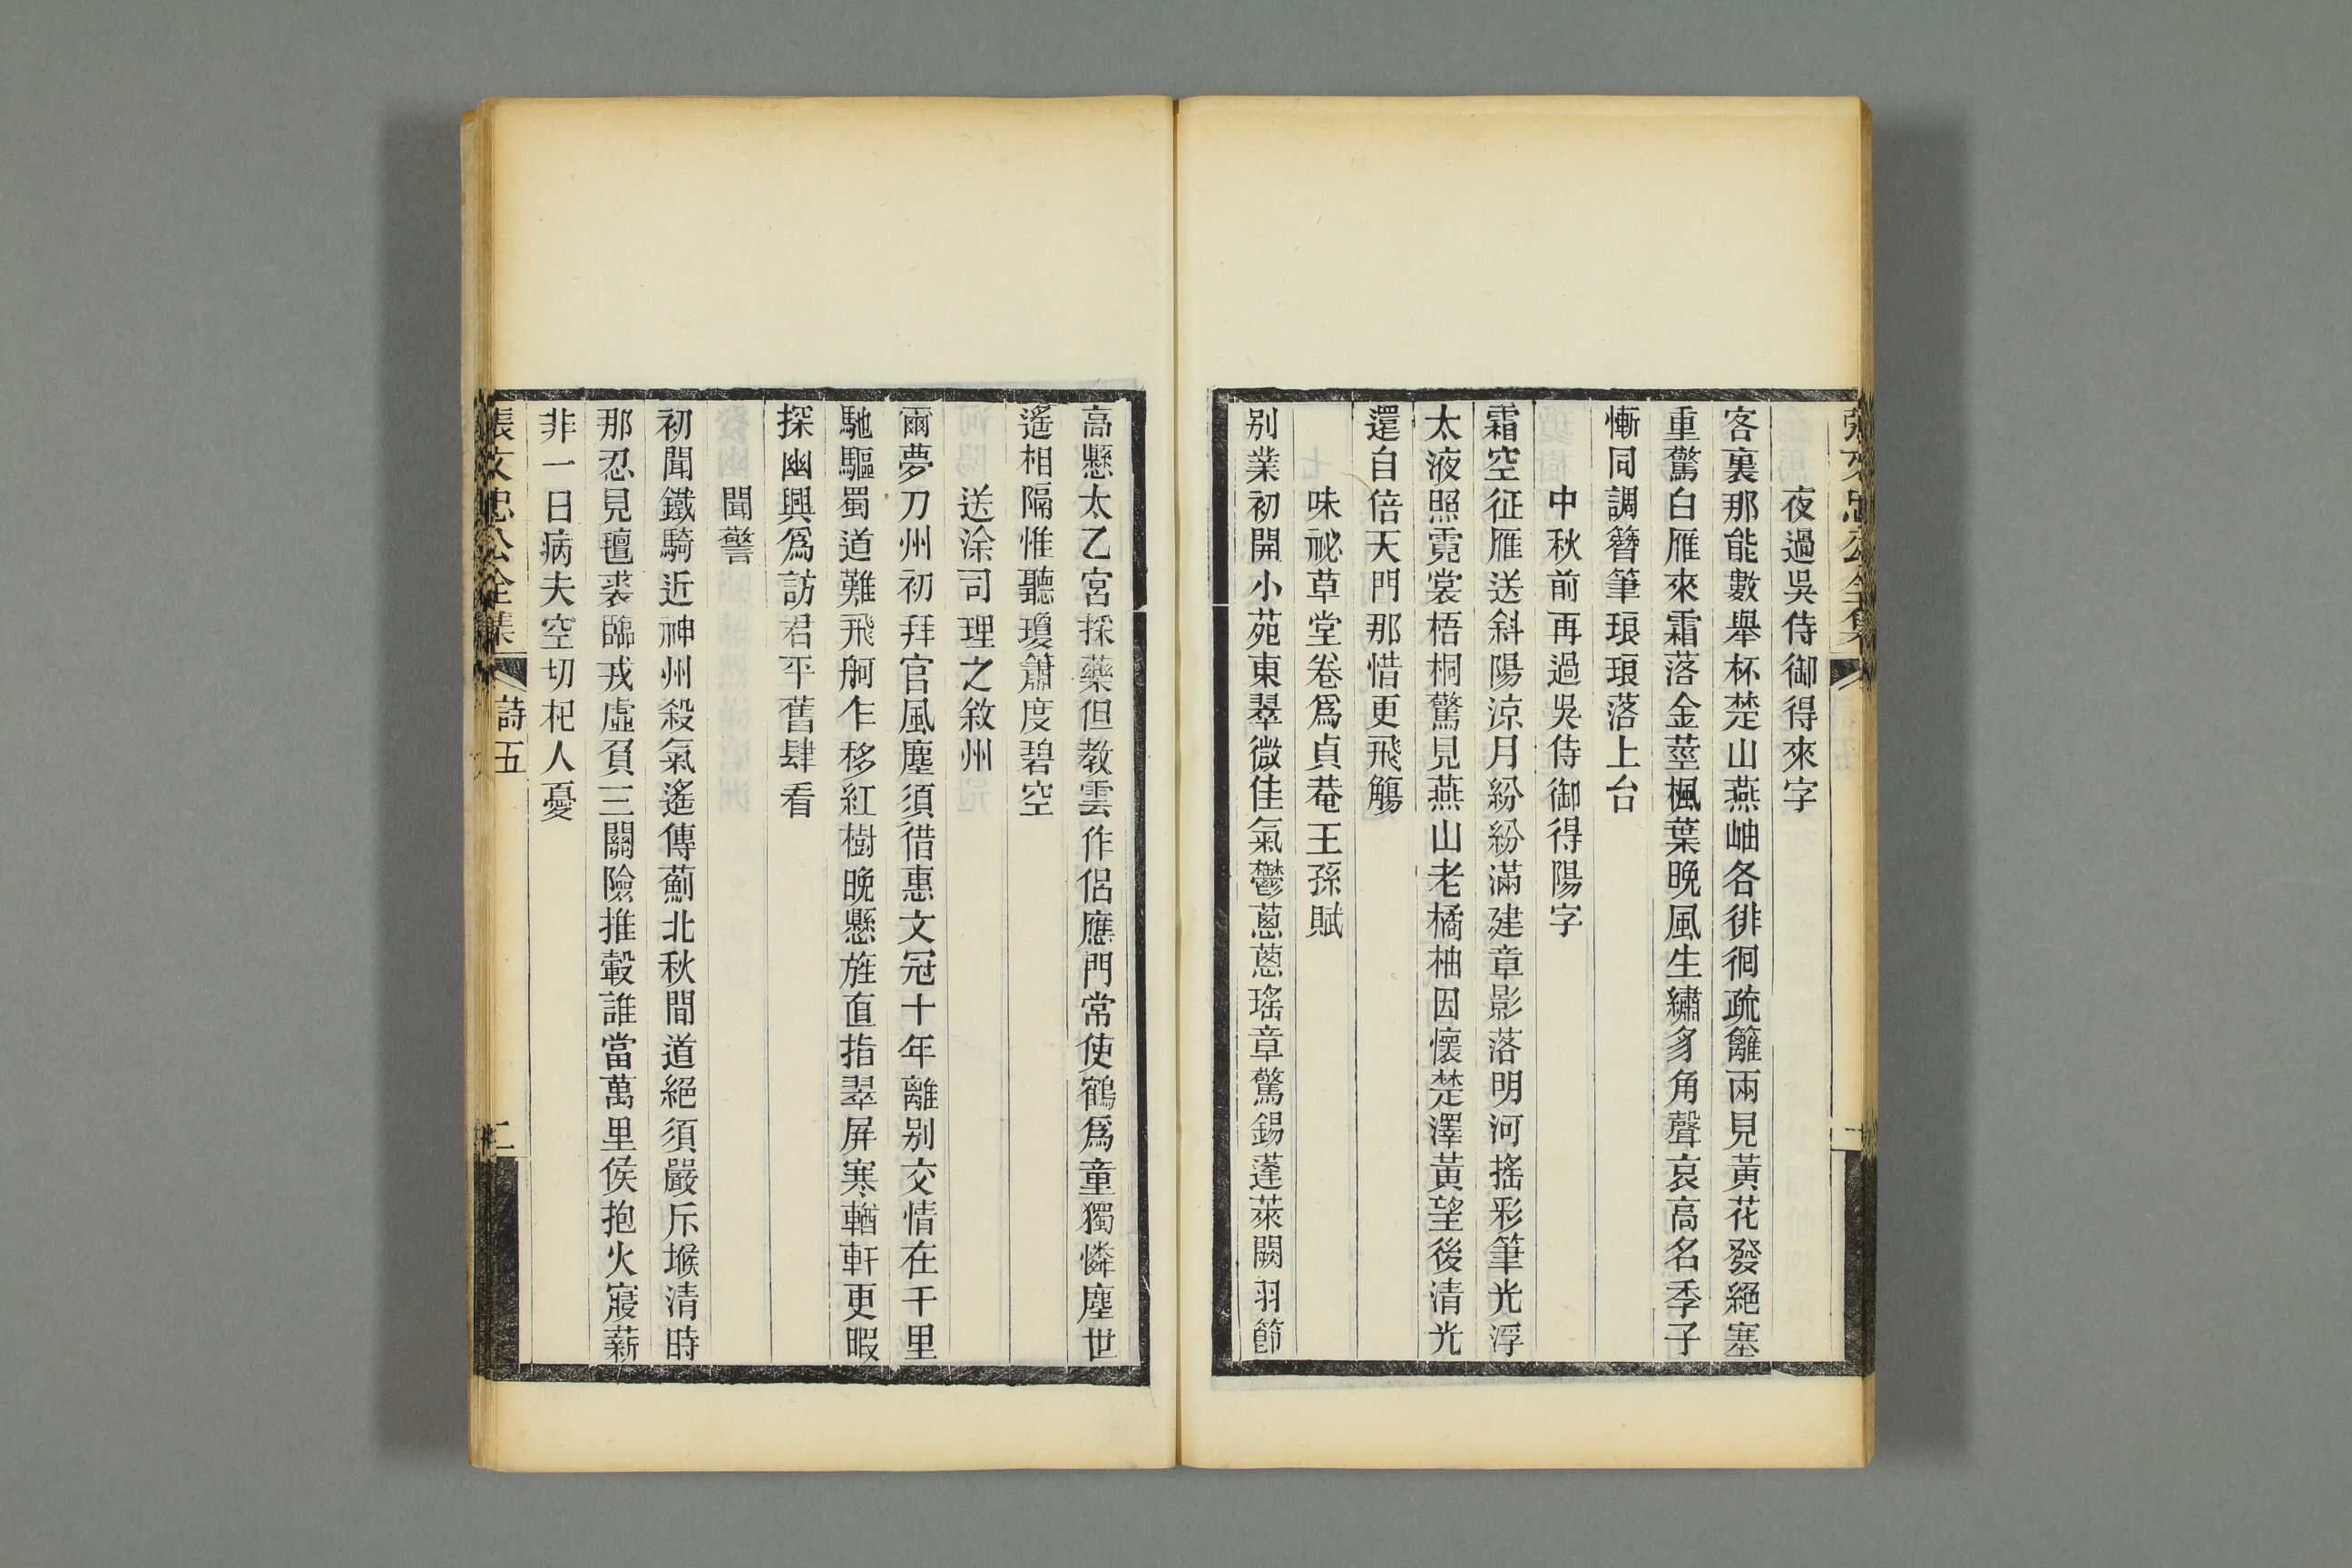 張文忠公全集
一
夜過吳侍御得來字
客裏那能數舉杯楚山燕岫各徘徊疏籬兩見黃花發絕塞
重驚白雁來霜落金莖楓葉晚風生繡豸角聲哀高名季子
慚同調簪筆琅琅落上台
中秋前再過吳侍御得陽字
霜空征雁送斜陽涼月紛紛滿建章影落明河搖彩筆光浮
太液照霓裳梧桐驚見燕山老橘柚因懷楚澤黃望後清光
還自倍天門那惜更飛觴
味祕草堂卷爲貞菴王孫賦
別業初開小苑東翠微佳氣鬱蔥蔥瑤章驚錫蓬萊闕羽節
高懸太乙宮採藥但教雲作侶應門常使鶴爲童獨憐塵世
遙相隔惟聽瓊簫度碧空
送涂司理之敘州
爾夢刀州初拜官風塵須借惠文冠十年離別交情在千里
馳驅蜀道難飛舸乍移紅樹晚懸旌直指翠屏寒輶軒更暇
探幽興爲訪君平舊肆看
聞警
初聞鐵騎近神州殺氣遙傳薊北秋間道絕須嚴斥堠清時
那忍見氊裘臨戎虛負三關險推轂誰當萬里侯抱火寢薪
非一日病夫空切杞人憂
張文忠公全集
詩五
二